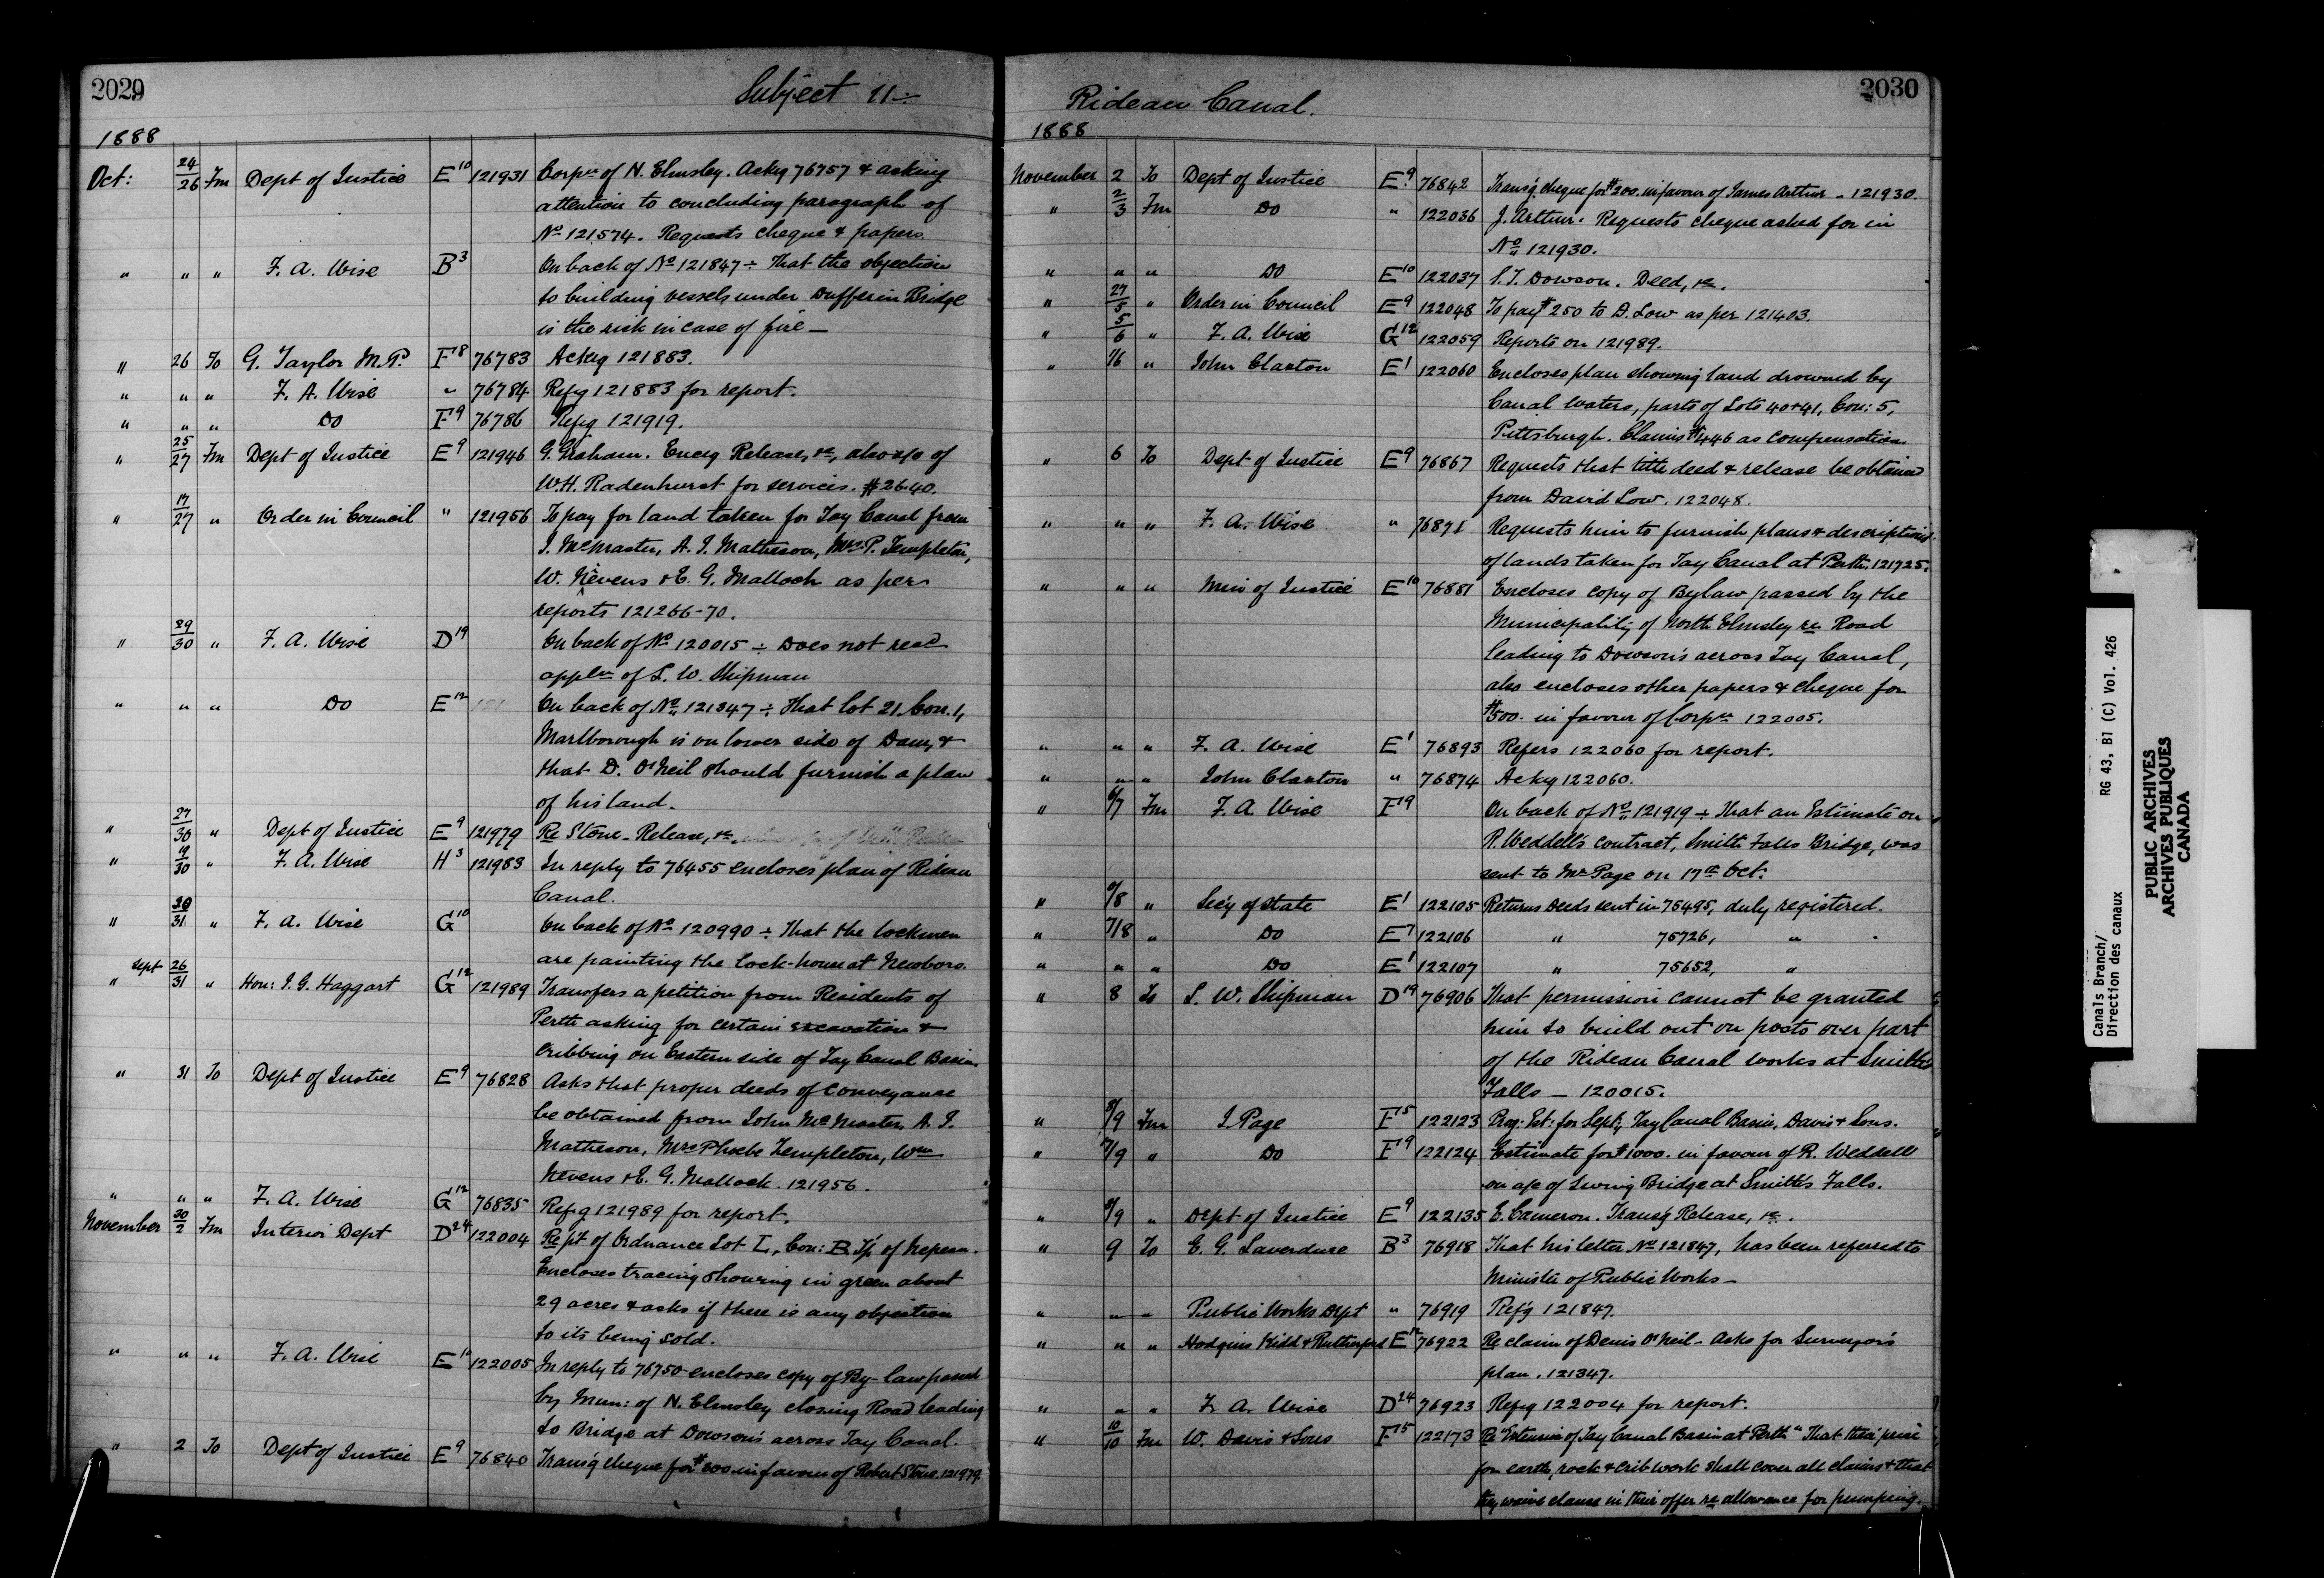 2029
Subject 11÷
1888
Oct: 24/26 Fm Dept of Justice E10 121931 Corpn of N. Elmsley. Ackg 76757 & asking
attention to concluding paragraph of
No 121574. Requests cheque & papers.
" " " F. A. Wise B3 On back of No 121847 ÷ That the objection
to building vessels under Dufferin Bridge
is the risk in case of fire —
" 26 To G. Taylor M.P. F18 76783 Ackg 121883.
" " " F. A. Wise " 76784 Refg 121883 for report.
" " " Do F9 76786 Refg 121919.
" 25/27 Fm Dept of Justice E9 121946 G. Graham. Encg Release, &c, also a/c of
W.H. Radenhurst for services. $26.40.
" 17/27 " Order in Council " 121956 To pay for land taken for Tay Canal from
J. McMaster, A. J. Matheson, Mrs P. Templeton,
W. Nevens & E. G. Malloch as per
reports 121266-70.
" 29/30 " F. A. Wise D19 On back of No 120015 ÷ Does not recd
appln of S. W. Shipman
" " " Do E12 On back of No 121347 ÷ That Lot 21 Con. 1,
Marlborough is on lower side of Dam, &
that D. O'Neil should furnish a plan
of his land.
" 27/30 " Dept of Justice E9 121979 Re Stone - Release, &c.
" 19/30 " F. A. Wise H3 121983 In reply to 76455 encloses plan of Rideau
Canal.
" 30/31 " F. A. Wise G10 On back of No 120990 ÷ That the lockmen
are painting the lock-house at Newboro.
" Sept 26/31 " Hon: J. G. Haggart G12 121989 Transfers a petition from Residents of
Perth asking for certain excavation &
cribbing on Eastern side of Tay Canal Basin.
" 31 To Dept of Justice E9 76828 Asks that proper deeds of conveyance
be obtained from John McMaster, A. J.
Matheson, Mrs Phoebe Templeton, Wm
Nevens & E. G. Malloch. 121956.
" " " F. A. Wise G12 76835 Refg 121989 for report.
November 30/2 Fm Interior Dept D24 122004 Re pt of Ordnance Lot I, Con: B Tp of Nepean.
Encloses tracing showing in green about
29 acres & asks if there is any objection
to its being sold.
" " " F. A. Wise E10 122005 In reply to 76750 encloses copy of By-law passed
by Mun: of N. Elmsley closing Road leading
to Bridge at Dowson's across Tay Canal.
" 2 To Dept of Justice E9 76840 Transg cheque for $200 in favour of Robert Stone. 121979
2030
Rideau Canal.
1888
November 2 To Dept of Justice E9 76842 Transg cheque for $200. in favour of James Arthur - 121930.
" 2/3 Fm Do " 122036 J. Arthur. Requests cheque asked for in
No 121930.
" " " Do E10 122037 S. T. Dowson. Deed, &c.
" 27/5 " Order in Council E9 122048 To pay $250 to D. Low as per 121403.
" 5/6 " F. A. Wise G12 122059 Reports on 121989.
" 1/6 " John Claxton E1 122060 Encloses plan showing land drowned by
Canal waters, parts of Lots 40 & 41, Con: 5,
Pittsburgh. Claims $446 as compensation.
" 6 To Dept of Justice E9 76867 Requests that title deed & release be obtained
from David Low. 122048.
" " " F. A. Wise " 76871 Requests him to furnish plans & descriptions
of lands taken for Tay Canal at Perth. 121725.
" " " Min of Justice E10 76881 Encloses copy of Bylaw passed by the
Municipality of North Elmsley re Road
leading to Dowson's across Tay Canal,
also encloses other papers & cheque for
$500. in favour of Corpn 122005.
" " " F. A. Wise E1 76893 Refers 122060 for report.
" " " John Claxton " 76874 Ackg 122060.
" 6/7 Fm F. A. Wise F9 On back of No 121919 ÷ That an Estimate on
R. Weddell's contract, Smiths Falls Bridge, was
sent to Mr Page on 17th Oct.
" 7/8 " Secy of State E1 122105 Returns Deeds sent in 75495, duly registered.
" 7/8 " Do E7 122106 " 75726, "
" " " Do E1 122107 " 75652, "
" 8 To S. W. Shipman D19 76906 That permission cannot be granted
him to build out on posts over part
of the Rideau Canal works at Smiths
Falls — 120015.
" 8/9 Fm J. Page F15 122123 Prog: Est: for Sept, Tay Canal Basin, Davis & Sons.
" 7/9 " Do F9 122124 Estimate for $1000. in favour of R. Weddell
on a/c of Swing Bridge at Smith's Falls.
" 8/9 " Dept of Justice E9 122135 E. Cameron. Transg Release, &c.
" 9 To E. G. Laverdure B3 76918 That his letter, No 121847, has been referred to
Minister of Public Works —
" " " Public Works Dept " 76919 Refg 121847.
" " " Hodgins Kidd & Rutherford E12 76922 Re claim of Denis O'Neil - Asks for Surveyor's
plan. 121347.
" " " F. A. Wise D24 76923 Refg 122004 for report.
" 10/10 Fm W. Davis & Sons F15 122173 Re "Extension of Tay Canal Basin at Perth" That their price
for earth, rock & crib work shall cover all claims & that
they waive clause in their offer re allowance for pumping.
Canals Branch/ RG 43, B1 (C) Vol. 426
Direction des canaux
PUBLIC ARCHIVES
ARCHIVES PUBLIQUES
CANADA